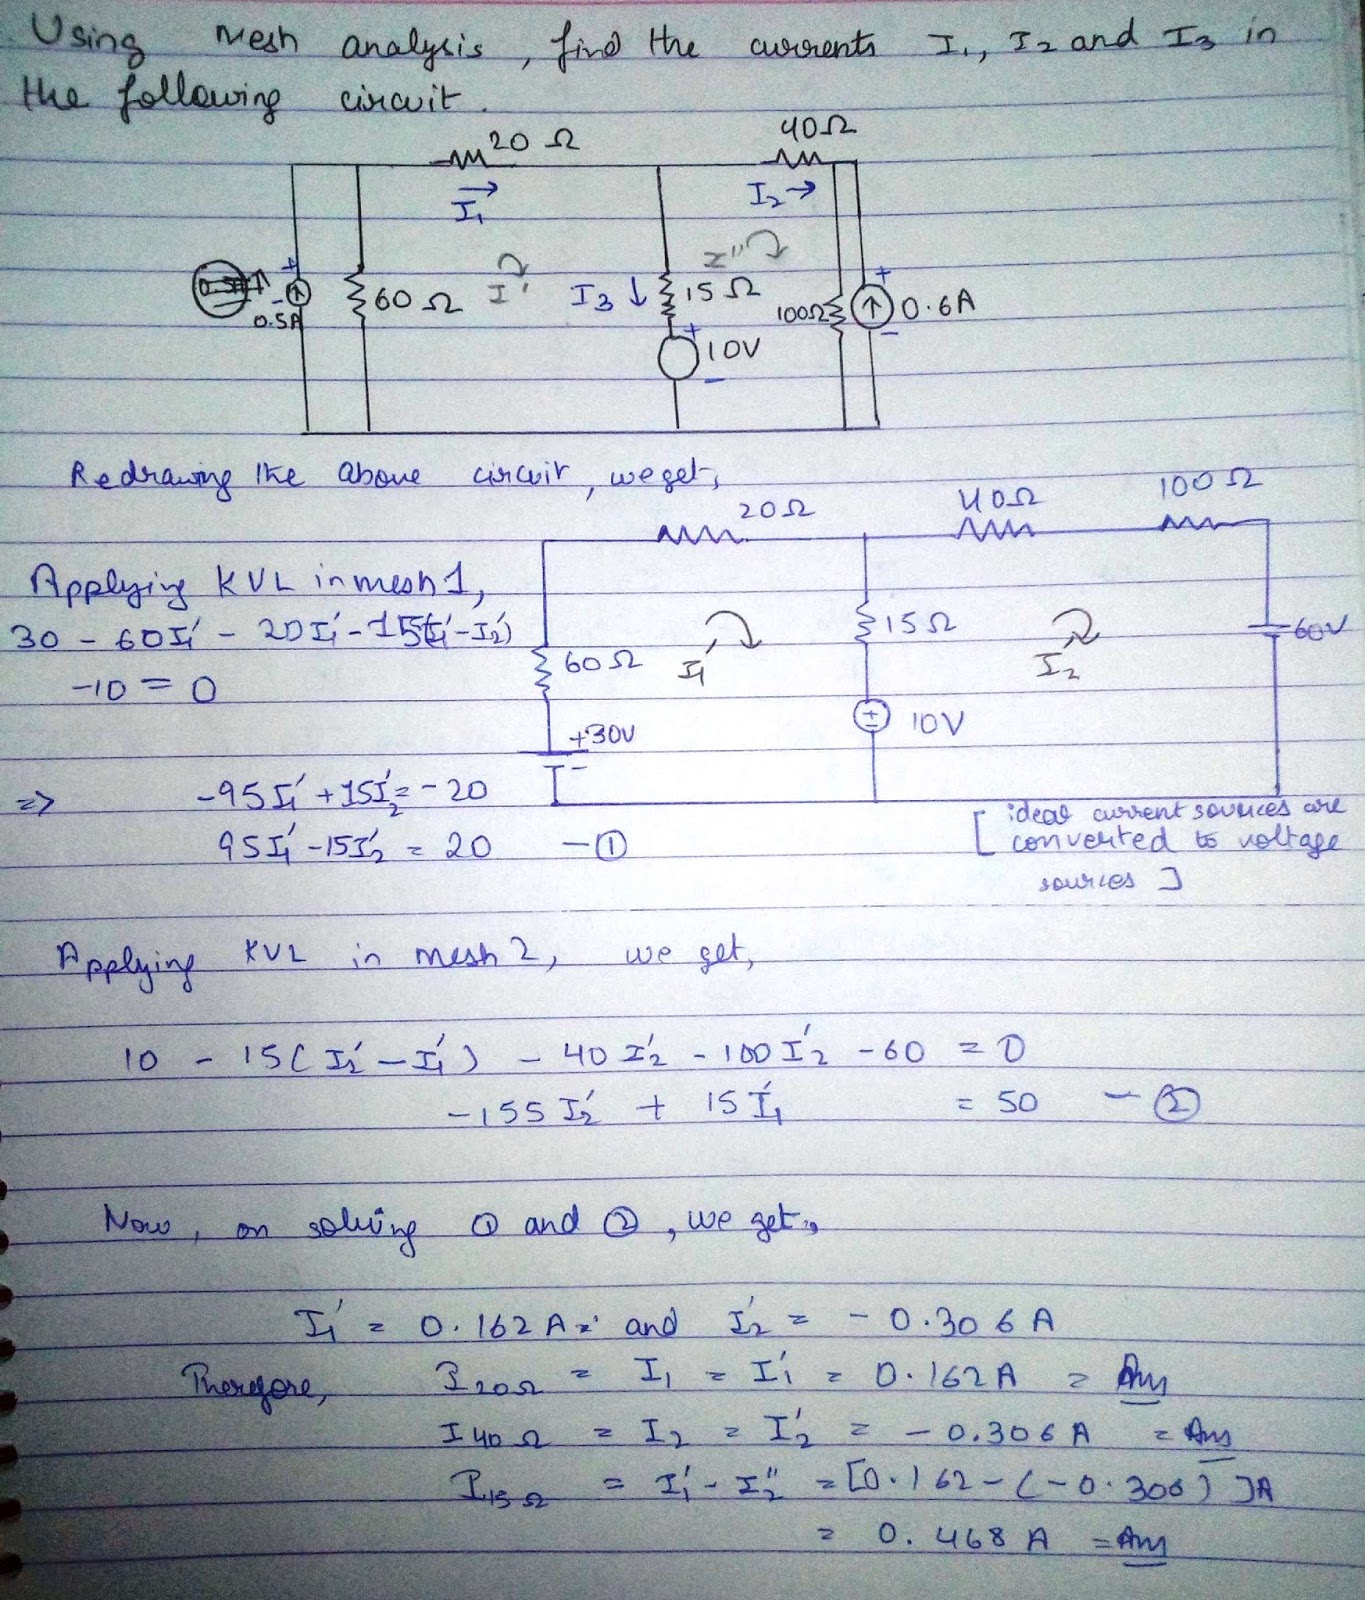 Using mesh analysis, find the currents I₁, I₂ and I₃ in
the following circuit.
20 Ω
40Ω
I₁
I₂ →
0.5A
60 Ω
I'
I₃ ↓
I''
15 Ω
10V
100Ω
0.6A
+
-
+
-
+
-
Redrawing the above circuit, we get,
20Ω
40Ω
100Ω
Applying KVL in mesh 1,
30 - 60I₁' - 20I₁' - 15(I₁' - I₂')
-10 = 0
60Ω
I₁
15Ω
I₂
60V
+30V
-
10V
=> -95I₁' + 15I₂' = -20
95I₁' - 15I₂' = 20 —①
[ideal current sources are
converted to voltage
sources]
Applying KVL in mesh 2, we get,
10 - 15(I₂' - I₁') - 40I₂' - 100I₂' - 60 = 0
-155I₂' + 15I₁ = 50 —②
Now, on solving ① and ②, we get,
I₁' = 0.162A and I₂' = -0.306A
Therefore, I₂₀Ω = I₁ = I₁' = 0.162A = Ans
I₄₀Ω = I₂ = I₂' = -0.306A = Ans
I₁₅Ω = I₁' - I₂'' = [0.162 - (-0.306)]A
= 0.468A = Ans